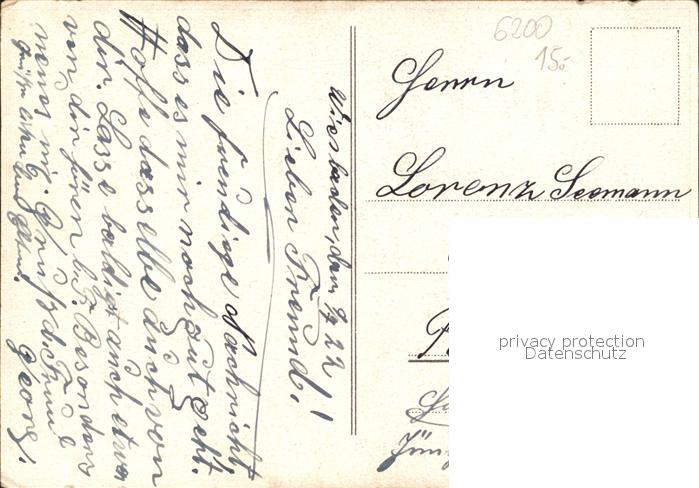 Wiesbaden, den 9/7 22
Lieber Freund!
Die freudige Nachricht
dass es mir noch gut geht.
Hoffe dasselbe auch von
dir. Lasse baldigst auch etwas
von dir hören b. F. Besonders
neues nix. Gruß d. Freund
Georg.
6200
15.-
Herrn
Lorenz Seemann
privacy protection
Datenschutz